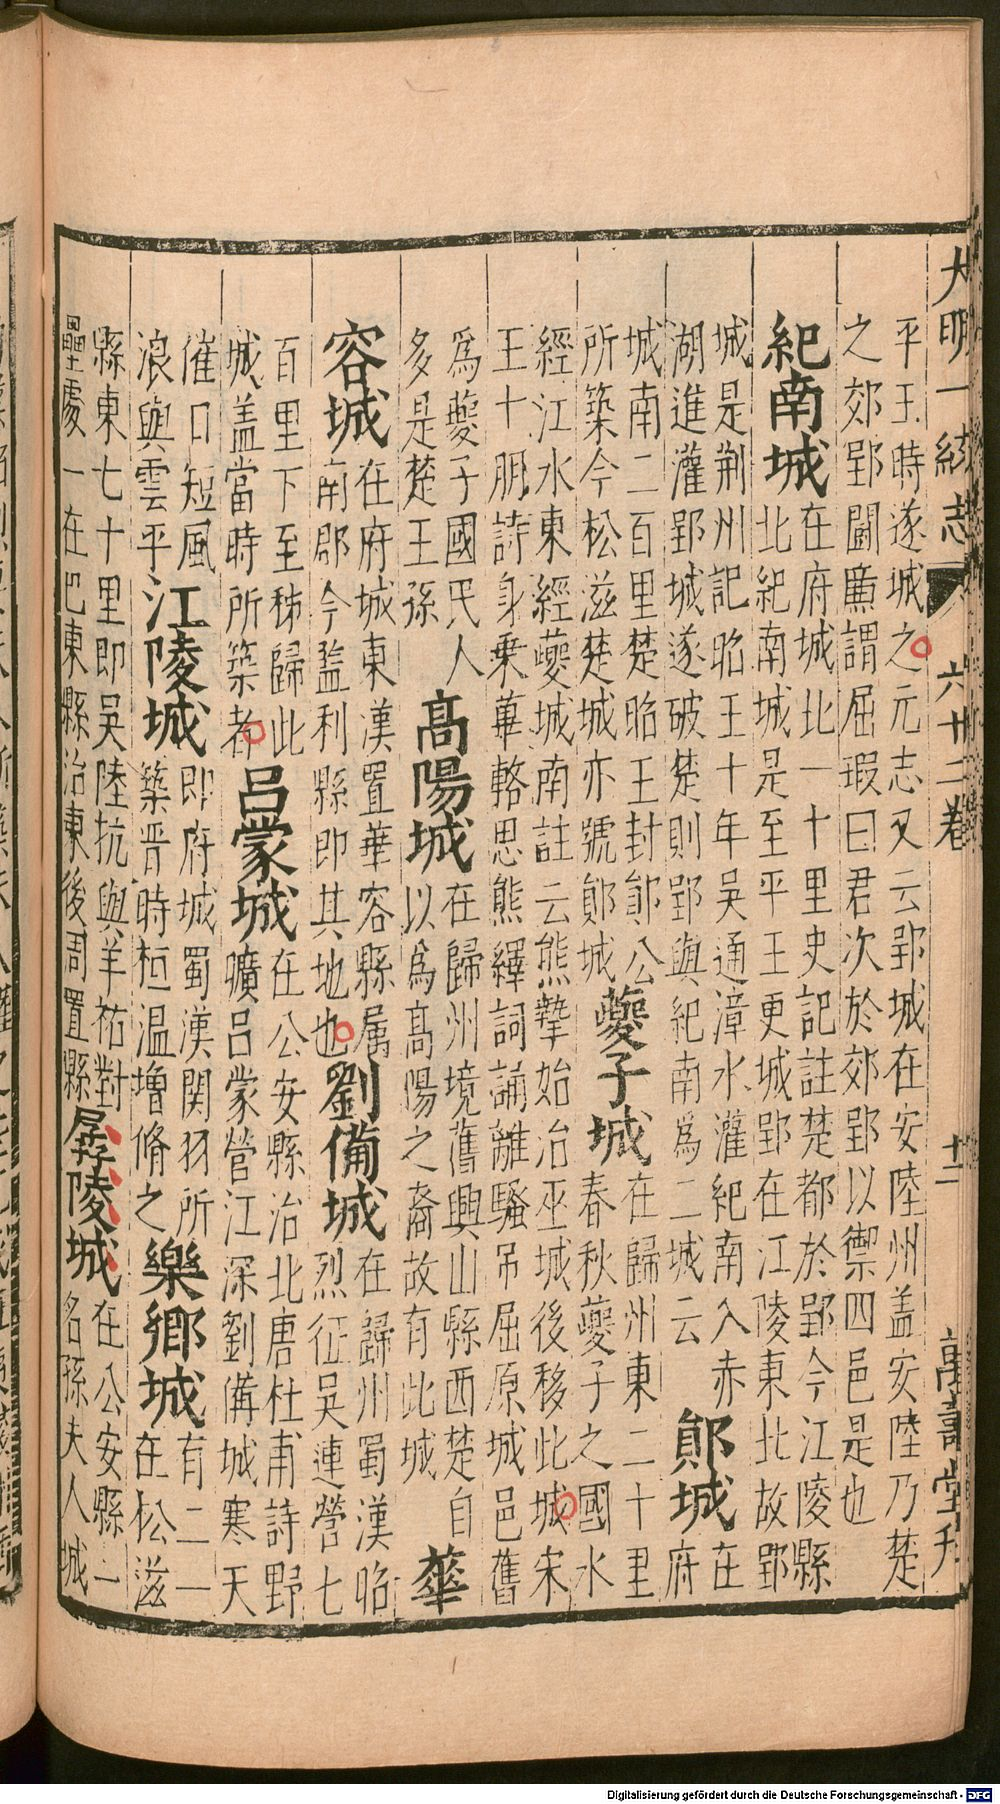 大明一統志 六十二卷 十二 萬壽堂刊
平王時遂城之元志又云郢城在安陸州盖安陸乃楚
之郊郢鬬廉謂屈瑕曰君次於郊郢以禦四邑是也
紀南城
在府城北一十里史記註楚都於郢今江陵縣
北紀南城是至平王更城郢在江陵東北故郢
城是荆州記昭王十年吳通漳水灌紀南入赤
湖進灌郢城遂破楚則郢與紀南爲二城云
鄖城
在
府
城南二百里楚昭王封鄖公
所築今松滋楚城亦號鄖城
夔子城
在歸州東二十里
春秋夔子之國水
經江水東經夔城南註云熊摯始治巫城後移此城宋
王十朋詩身乗蓽輅思熊繹詞誦離騷吊屈原城邑舊
爲夔子國民人
多是楚王孫
髙陽城
在歸州境舊興山縣西楚自
以爲髙陽之裔故有此城
華
容城
在府城東漢置華容縣属
南郡今監利縣即其地也
劉備城
在歸州蜀漢昭
烈征吳連營七
百里下至秭歸此
城盖當時所築者
吕蒙城
在公安縣治北唐杜甫詩野
曠吕蒙營江深劉備城寒天
催日短風
浪與雲平
江陵城
即府城蜀漢関羽所
築晉時桓温增脩之
樂郷城
有二一
在松滋
縣東七十里即吳陸抗與羊祜對
壘處一在巴東縣治東後周置縣
孱陵城
在公安縣二
名孫夫人城
Digitalisierung gefördert durch die Deutsche Forschungsgemeinschaft - DFG